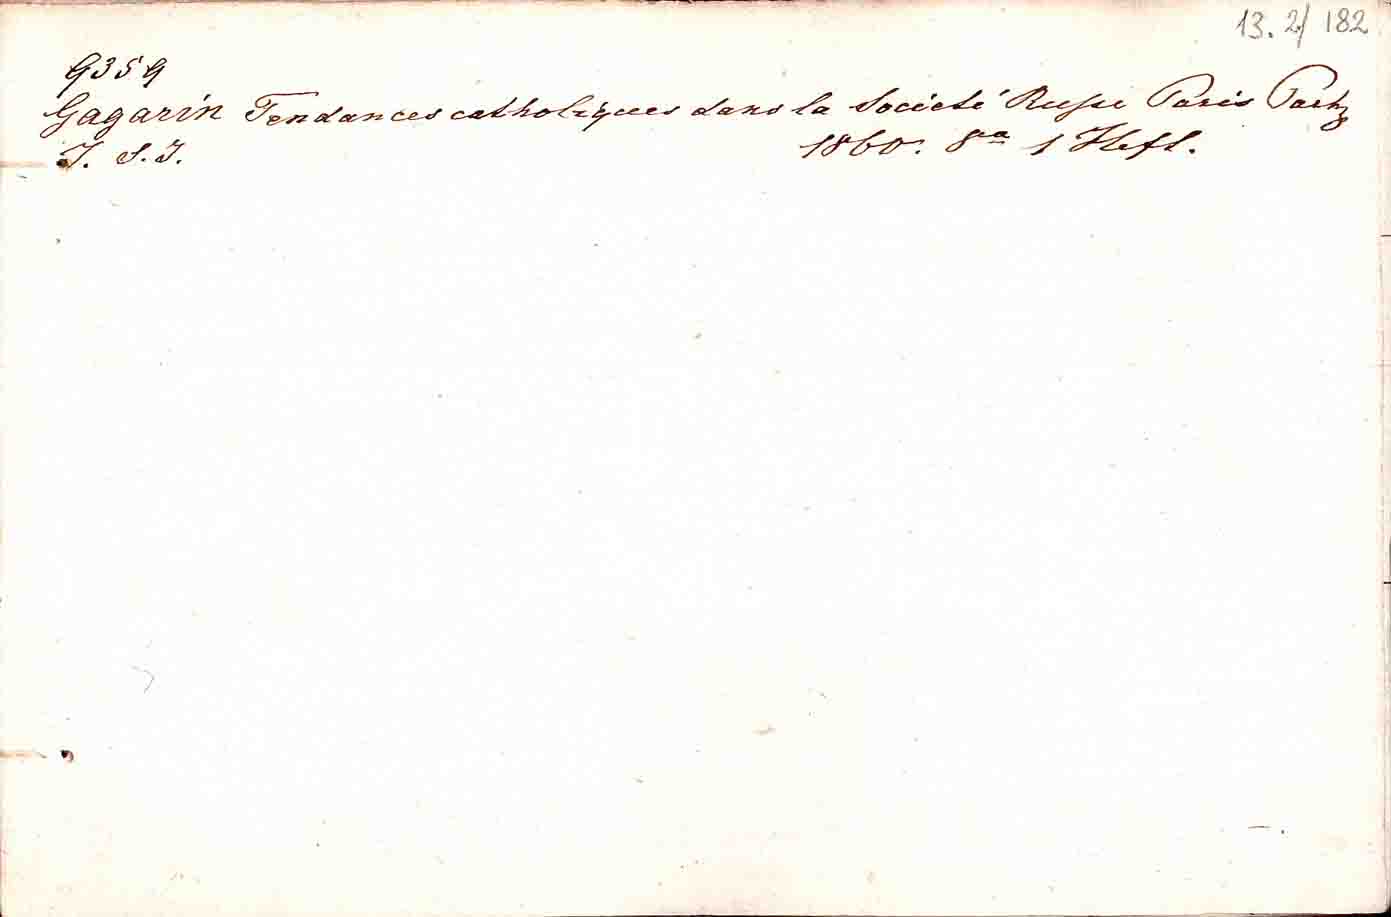 13. 2/ 182
9359
Gagarin Tendances catholiques dans la Société Russe Paris
J. S. J. 1860. 8° 1 Heft.